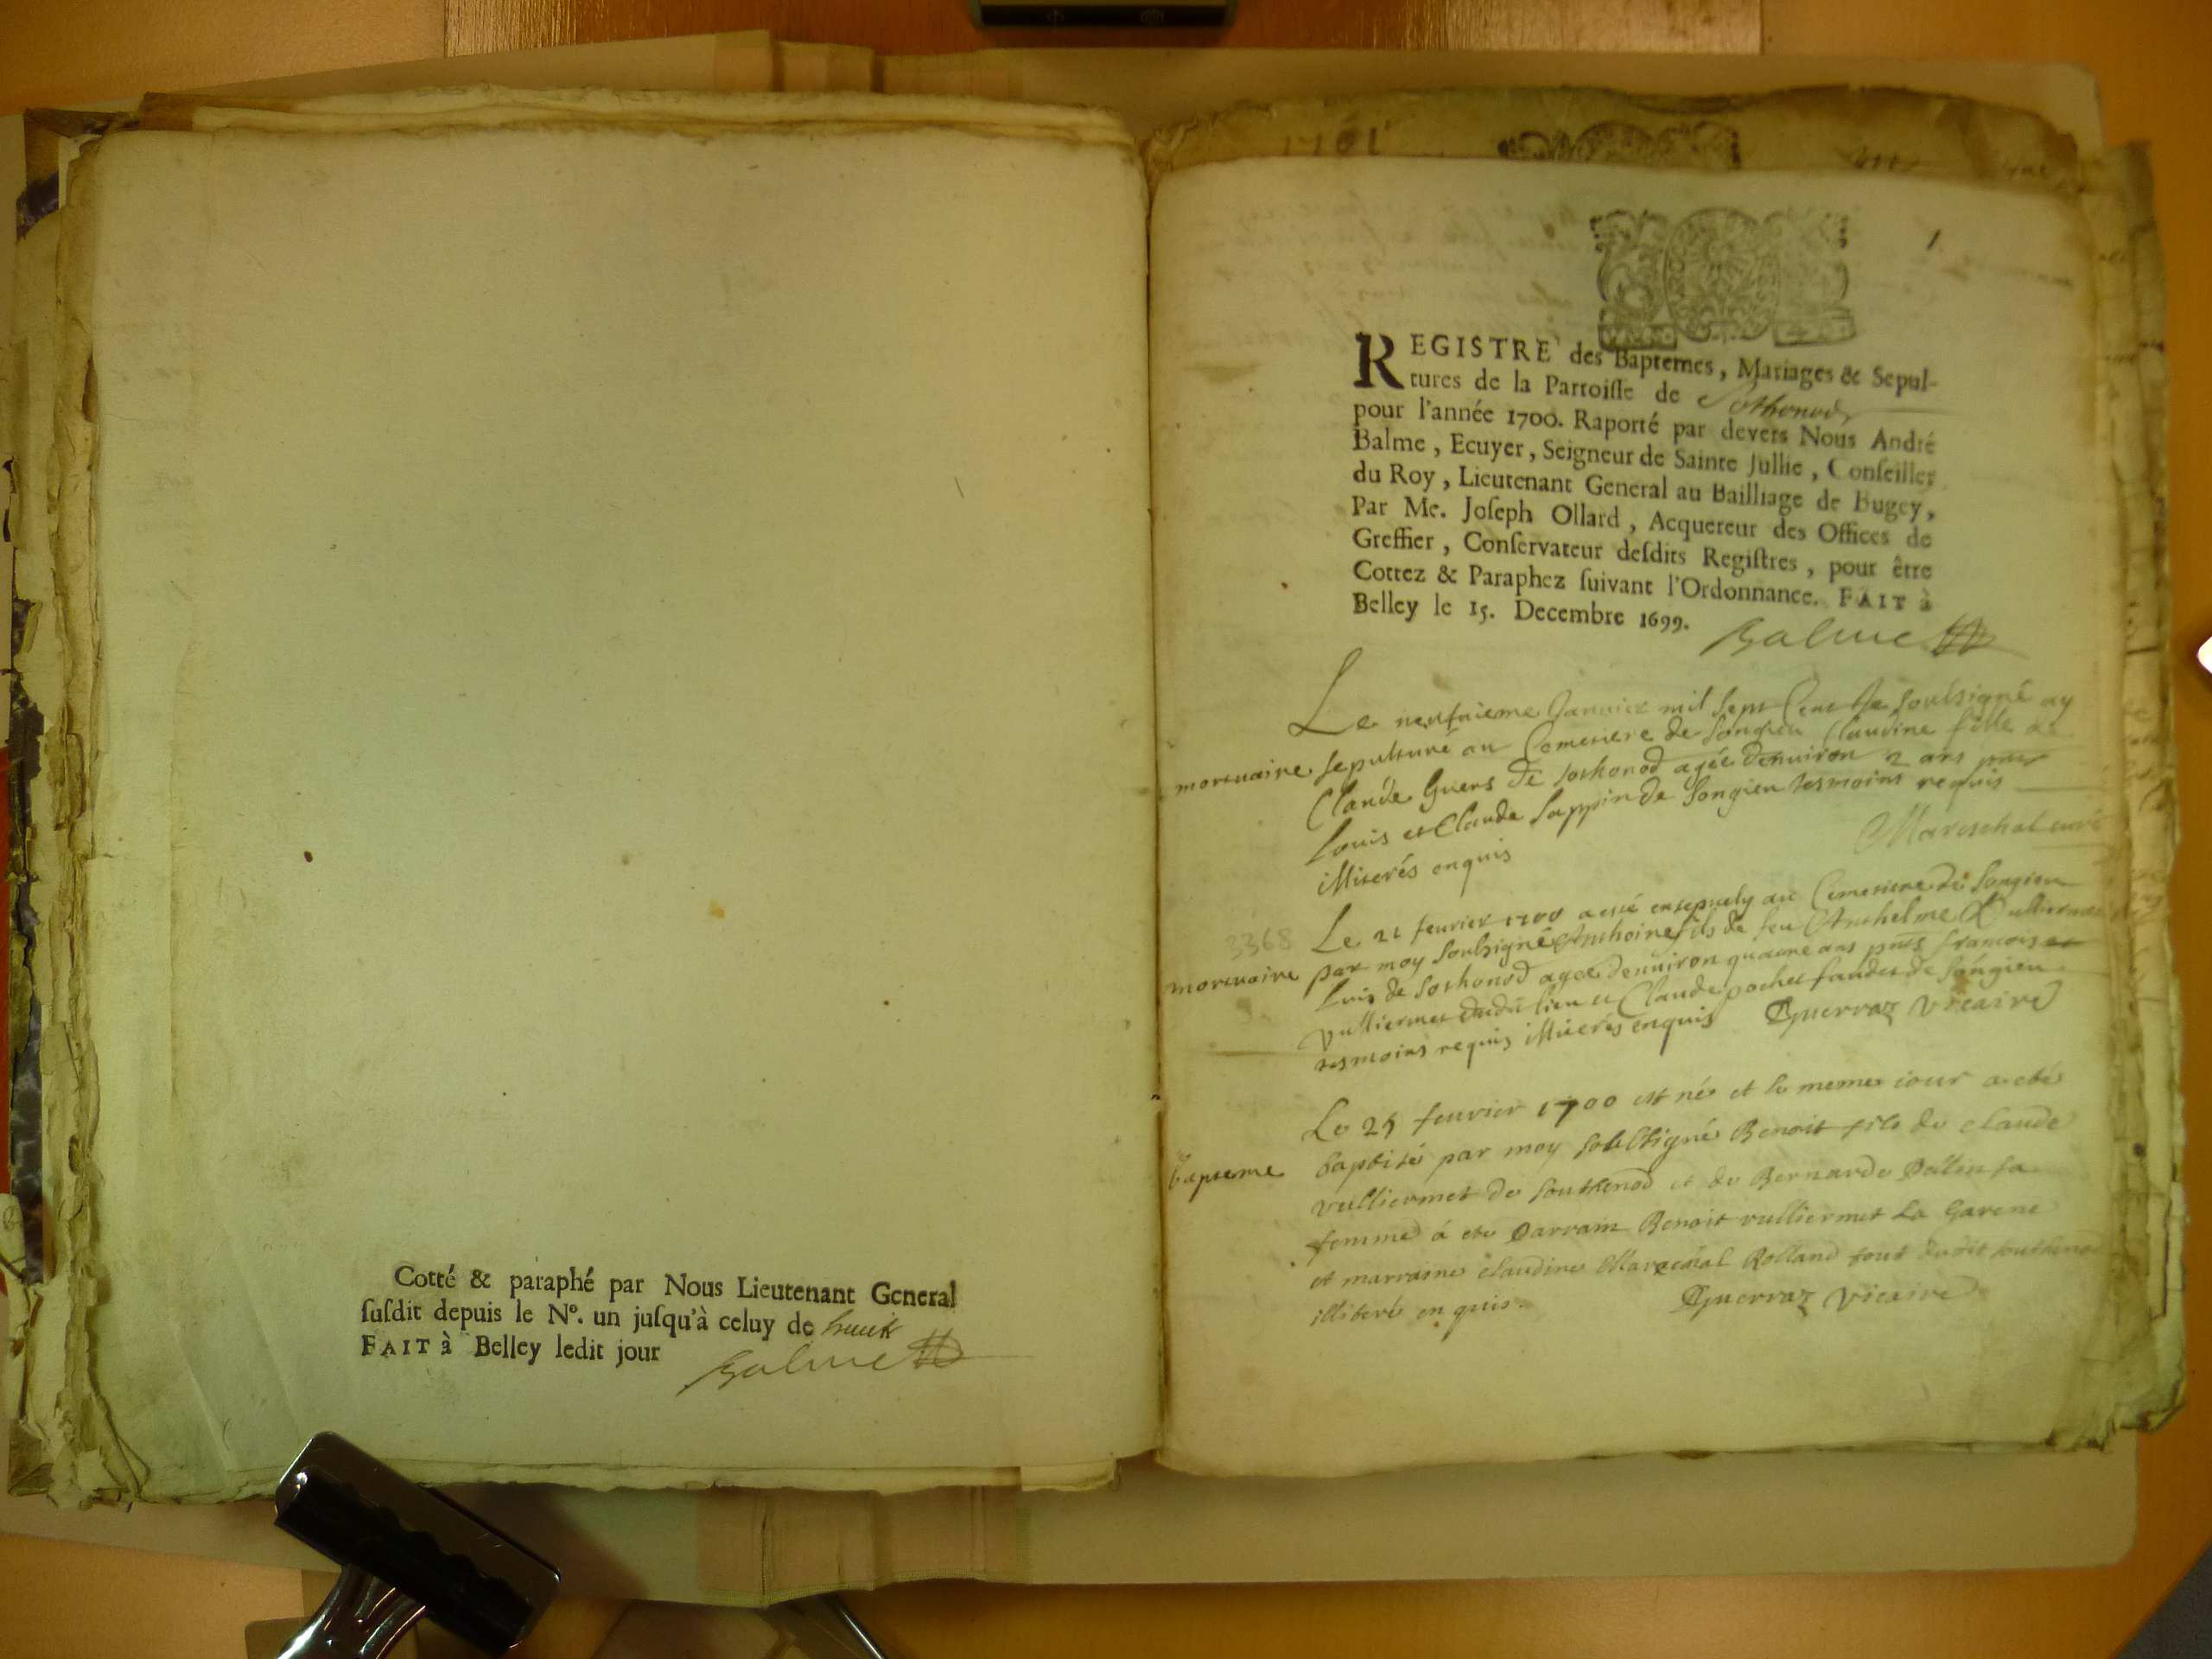 Cotté & paraphé par Nous Lieutenant General
ſuſdit depuis le Nº. un juſqu'à celuy de huict
FAIT à Belley ledit jour
Balme
1701
1
REGISTRE des Baptemes, Mariages & Sepul-
tures de la Parroiſſe de Sothonod
pour l'année 1700. Raporté par devers Nous André
Balme, Ecuyer, Seigneur de Sainte Jullie, Conſeiller
du Roy, Lieutenant General au Bailliage de Bugey,
Par Me. Joſeph Ollard, Acquereur des Offices de
Greffier, Conſervateur deſdits Regiſtres, pour être
Cottez & Paraphez ſuivant l'Ordonnance. FAIT à
Belley le 15. Decembre 1699.
Balme
Le neufuieme Januier mil sept Cent Je soubsigné ay
mortuaire sepulturé au Cemetiere de Songieu Claudine fille de
Claude Guers de Sothonod agée denuiron 2 ans
Louis et Claude Sappin de Songieu tesmoins requis
illiterés enquis
Mareschal curé
3368
Le 21 feurier 1700 a esté ensepuely au Cemetiere de Songieu
mortuaire par moy soubsigné Anthoine fils de feu Anthelme Vulliermet
de Sothonod agee denuiron quatre ans francois
Vulliermet dudit lieu et Claude pochet de Songieu
tesmoins requis illiterés enquis Guerraz vicaire
Le 25 feurier 1700 est né et le meme iour a eté
bapteme baptisé par moy soubsigné Benoit fils de claude
vulliermet de Southonod et de Bernarde sa
femme á eté parrain Benoit vulliermet La Garene
et marraine claudine Marechal Rolland tout dudit
illiteré en quis. Guerraz vicaire